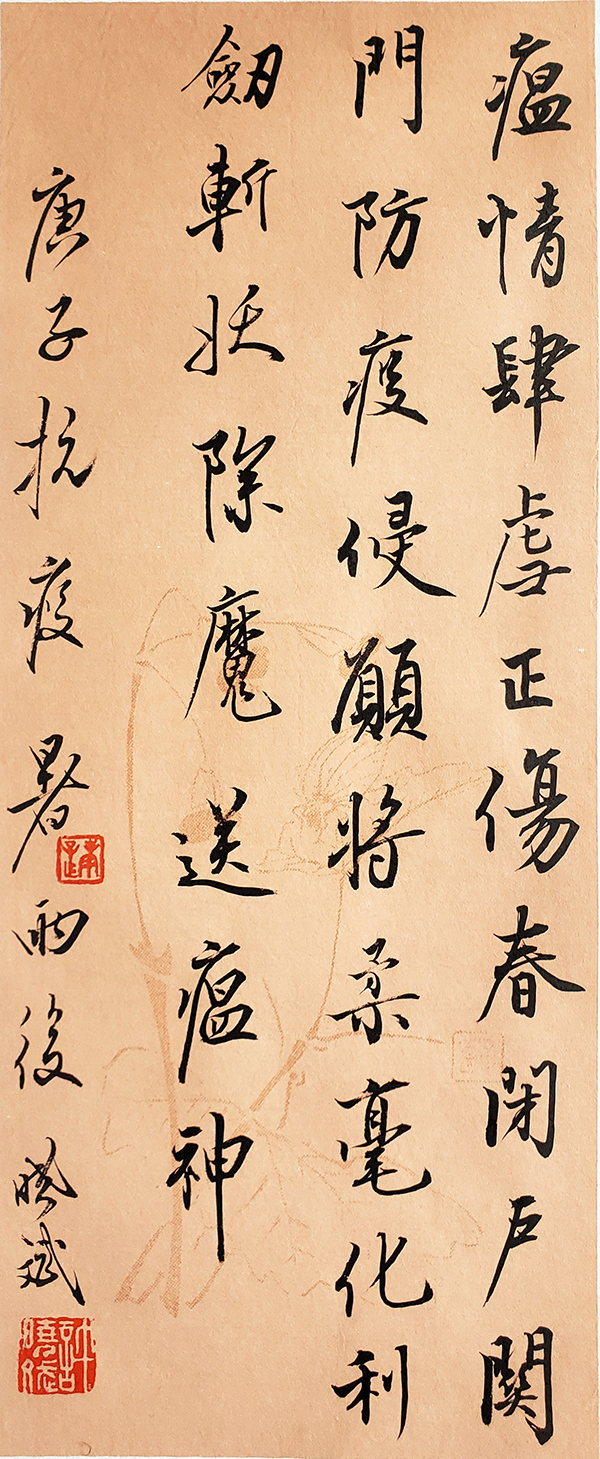 瘟情肆虐正傷春閉戶關
門防疫侵願將柔毫化利
劒斬妖除魔送瘟神
庚子抗疫暑雨後曉斌